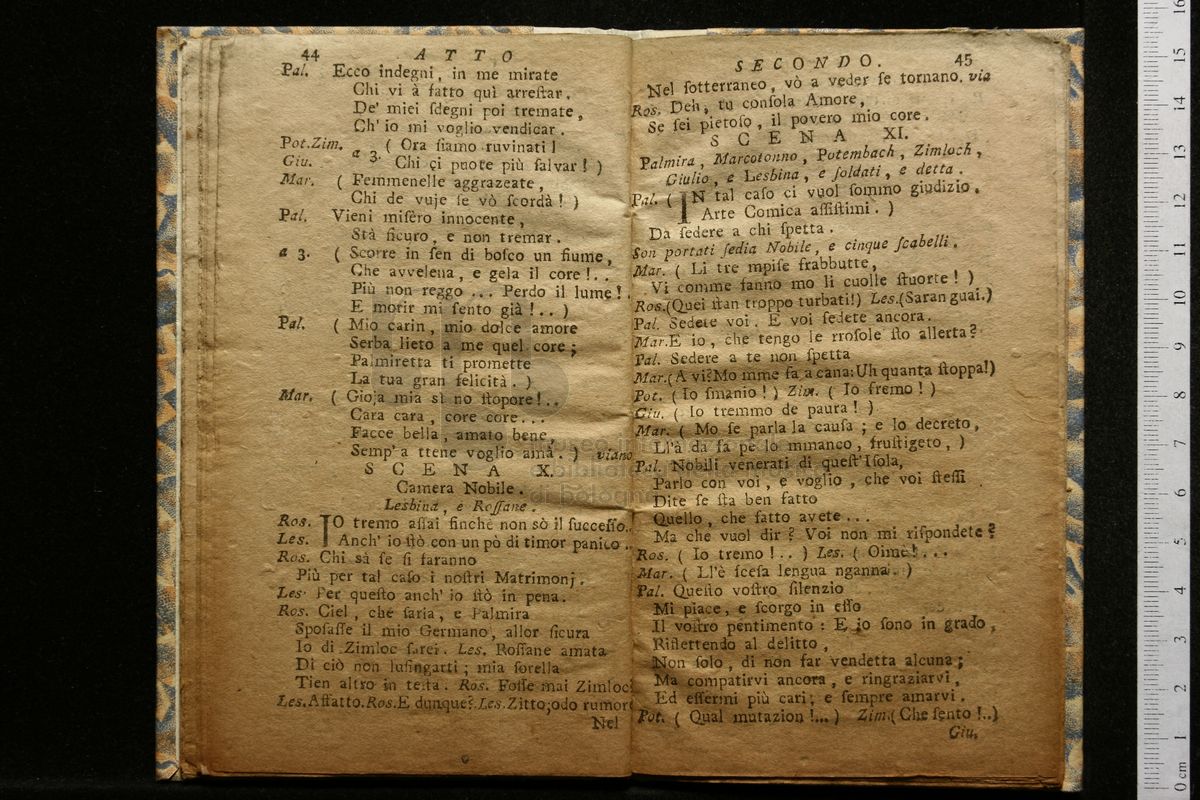 44 ATTO
Pal. Ecco indegni, in me mirate
Chi vi à fatto quì arreſtar.
De' miei ſdegni poi tremate,
Ch' io mi voglio vendicar.
Pot.Zim. a 3. ( Ora ſiamo ruvinati!
Giu. Chi çi puote più ſalvar! )
Mar. ( Femmenelle aggrazeate,
Chi de vuje ſe vò ſcordà! )
Pal. Vieni miſero innocente,
Stà ſicuro, e non tremar.
a 3. ( Scorre in ſen di boſco un fiume,
Che avvelena, e gela il core!..
Più non reggo ... Perdo il lume!
E morir mi ſento già!.. )
Pal. ( Mio carin, mio dolce amore
Serba lieto a me quel core;
Palmiretta ti promette
La tua gran felicità. )
Mar. ( Gioja mia si no ſtopore!..
Cara cara, core core...
Facce bella, amato bene,
Semp' a ttene voglio amà. ) viano
SCENA X.
Camera Nobile.
Lesbina, e Roſſane.
Ros. IO tremo aſſai finchè non sò il ſucceſſo.
Les. Anch' io ſtò con un pò di timor panico.
Ros. Chi sà ſe ſi faranno
Più per tal caſo i noſtri Matrimonj.
Les. Per queſto anch' io ſtò in pena.
Ros. Ciel, che ſaria, e Palmira
Spoſaſſe il mio Germano, allor ſicura
Io di Zimloc ſarei. Les. Roſſane amata
Di ciò non luſingarti; mia ſorella
Tien altro in teſta. Ros. Foſſe mai Zimloc
Les. Affatto. Ros. E dunque? Les. Zitto; odo rumor
Nel
SECONDO. 45
Nel ſotterraneo, vò a veder ſe tornano. via
Ros. Deh, tu conſola Amore,
Se ſei pietoſo, il povero mio core.
SCENA XI.
Palmira, Marcotonno, Potembach, Zimloch,
Giulio, e Lesbina, e ſoldati, e detta.
Pal. ( IN tal caſo ci vuol ſommo giudizio.
Arte Comica aſſiſtimi. )
Da ſedere a chi ſpetta.
Son portati ſedia Nobile, e cinque ſcabelli.
Mar. ( Li tre mpiſe frabbutte,
Vi comme fanno mo li cuolle ſtuorte! )
Ros. (Quei ſtan troppo turbati!) Les. (Saran guai.)
Pal. Sedete voi. E voi ſedete ancora.
Mar. E io, che tengo le rroſole ſto allerta?
Pal. Sedere a te non ſpetta
Mar. (A vi? Mo mme fa a cana: Uh quanta ſtoppa!)
Pot. ( Io ſmanio! ) Zim. ( Io fremo! )
Giu. ( Io tremmo de paura! )
Mar. ( Mo ſe parla la cauſa; e lo decreto,
Ll'à da fà pe lo mmanco, fruſtigeto, )
Pal. Nobili venerati di queſt' Iſola,
Parlo con voi, e voglio, che voi ſteſſi
Dite ſe ſta ben fatto
Quello, che fatto avete...
Ma che vuol dir? Voi non mi riſpondete?
Ros. ( Io tremo!.. ) Les. ( Oimè!...
Mar. ( Ll'è ſceſa lengua nganna. )
Pal. Queſto voſtro ſilenzio
Mi piace, e ſcorgo in eſſo
Il voſtro pentimento: E io ſono in grado,
Riflettendo al delitto,
Non ſolo, di non far vendetta alcuna;
Ma compatirvi ancora, e ringraziarvi,
Ed eſſermi più cari; e ſempre amarvi.
Pot. ( Qual mutazion!... ) Zim. ( Che ſento!..)
Giu.